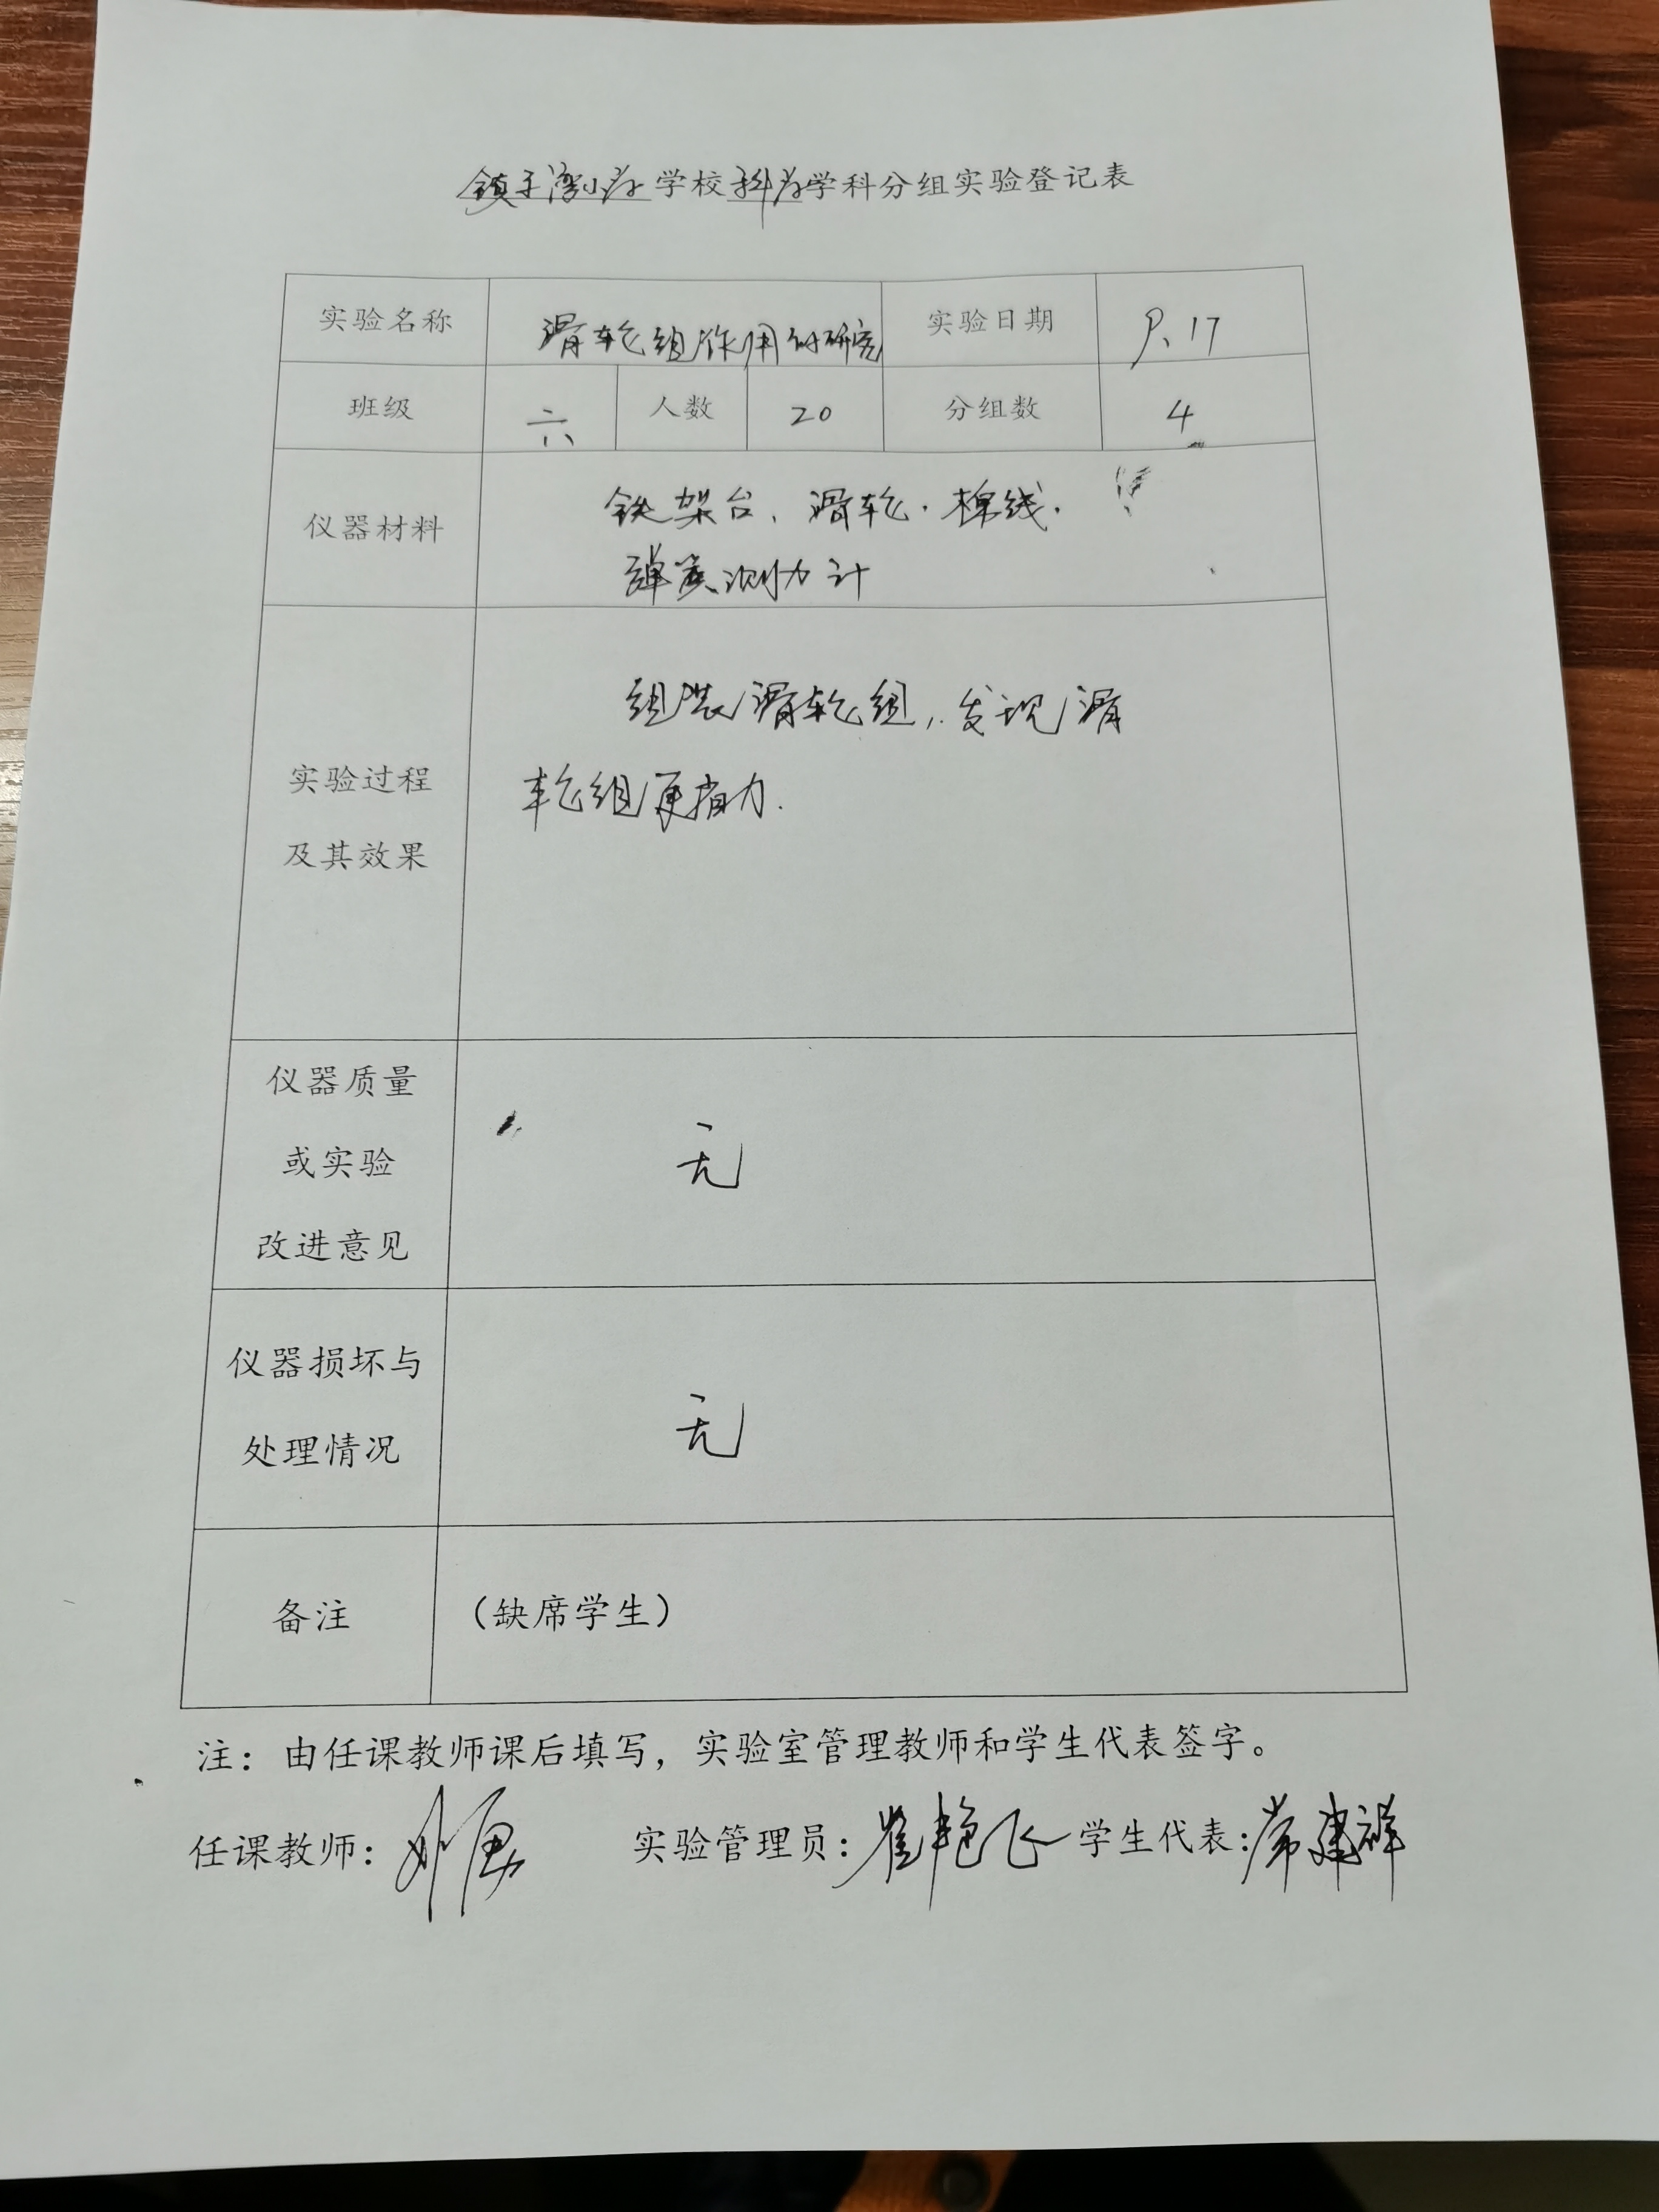 镇子湾小学学校科学学科分组实验登记表
实验名称 滑轮组作用的研究 实验日期 9.17
班级 六 人数 20 分组数 4
仪器材料 铁架台、滑轮.棉线.
弹簧测力计
实验过程
及其效果
组装滑轮组,发现滑
轮组更省力.
仪器质量
或实验
改进意见
无
仪器损坏与
处理情况
无
备注 (缺席学生)
注:由任课教师课后填写,实验室管理教师和学生代表签字。
任课教师: 实验管理员:崔艳飞 学生代表:常建祥